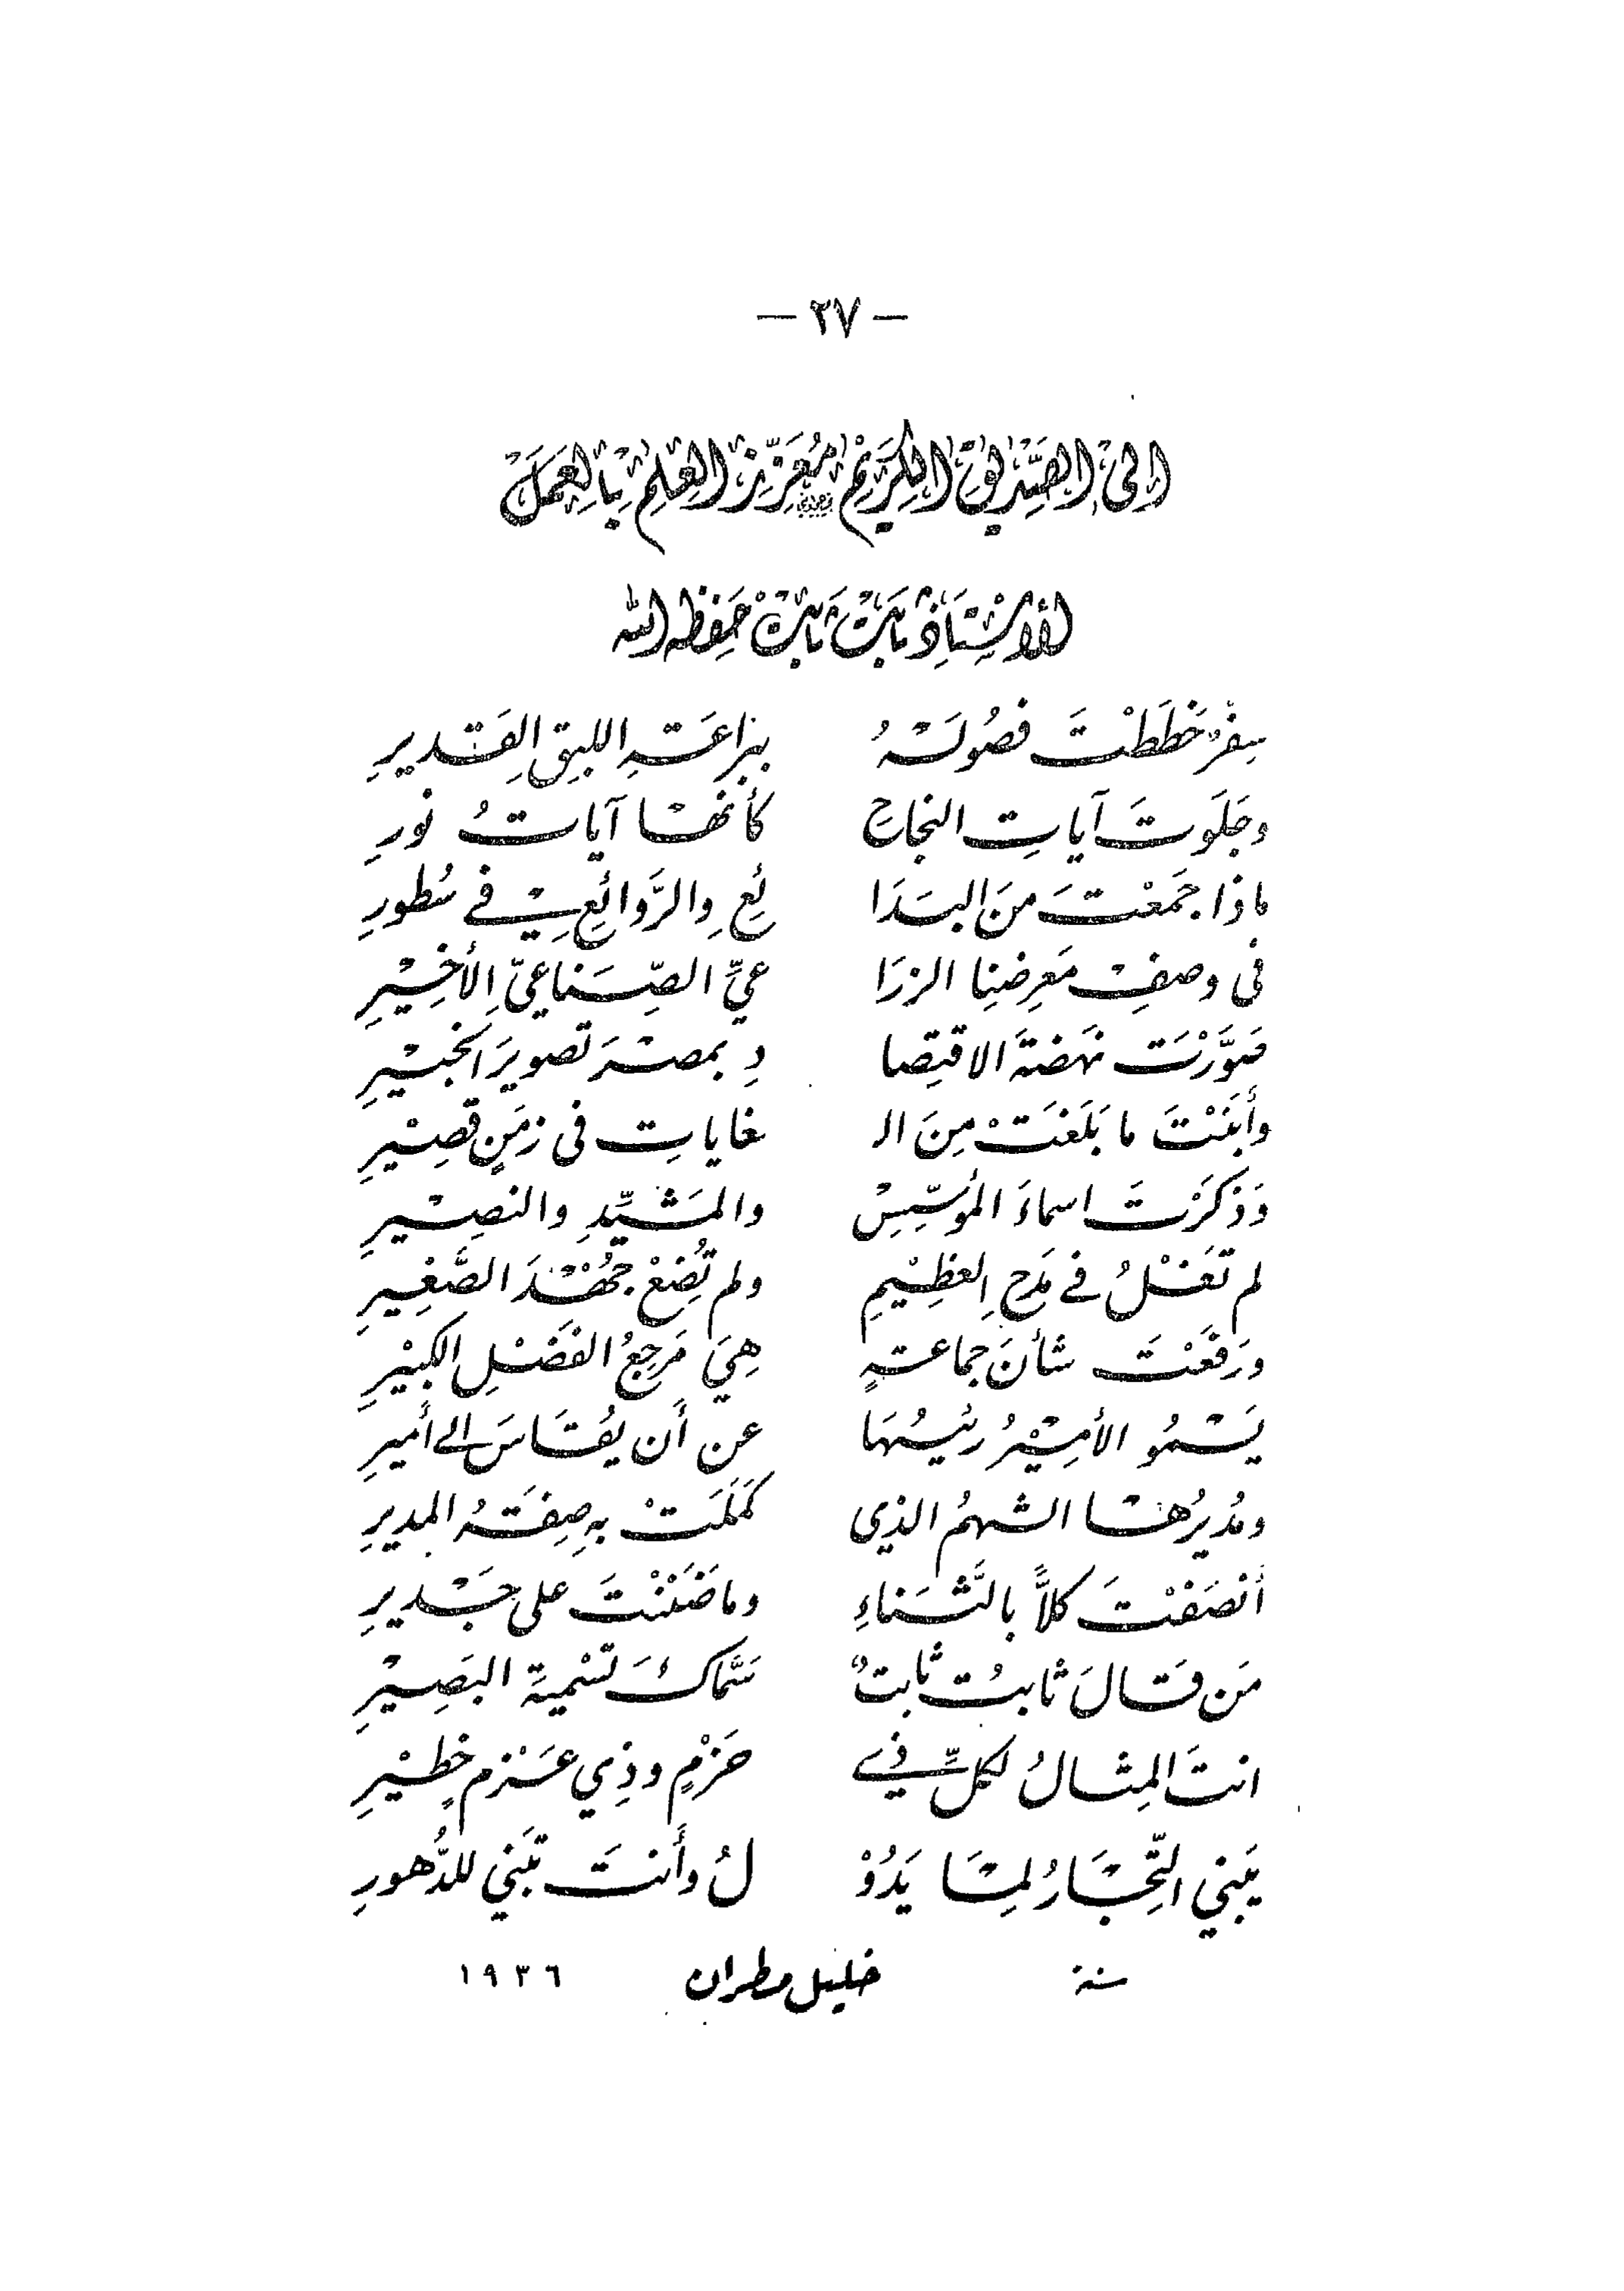 — ٢٧ —
الى الصَّديقِ الكَريْمِ مُعَزِّزِ العِلمِ بِالعَمَلْ
الأُسْتَاذ ثابَتْ ثابتْ حَفِظه الله
سِفرٌ خَطَطْتَ فصُولَهُ ببَراعَةِ اللبِقِ القَديرِ
وجَلَوتَ آياتِ النجاحِ كأنها آياتُ نورِ
ماذا جَمَعْتَ منَ البدَا ئعِ والرَّوائعِ في سُطورِ
في وصفِ مَعرِضنِا الزرَا عيِّ الصِّناعيّ الأخِيْرِ
صَوَّرْتَ نهَضةَ الاقتِصا دِ بمصْرَ تصويرَ الخبيْرِ
وأبَنْتَ ما بَلَغَتْ مِنَ الـ غاياتِ في زمَنٍ قصِيْرِ
وَذكَرْتَ اسماءَ المؤسِّسِ والمشَيِّدِ والنصِيْرِ
لم تَغْلُ في مَدحِ العظِيْمِ ولم تُضِعْ جُهْدَ الصَّغِيرِ
ورَفَعْتَ شأنَ جماعةٍ هِيَ مَرجعُ الفَضْلِ الكبيْرِ
يَسْمُو الأمِيْرُ رئيسُهَا عن أَن يُقَاسَ الى أَميرِ
ومُديرُها الشهمُ الذي كَمَلَتْ بهِ صِفَةُ المديرِ
أنصَفْتَ كلاًّ بالثَّناءِ وما ضَنَنْتَ على جَديرِ
مَن قالَ ثابتُ ثابتٌ سَمَّاكَ تَسْميةَ البَصِيْرِ
انتَ المِثالُ لكلِّ في حَزْمٍ وذِي عَزْمٍ خطِيْرِ
يَبني التِّجَارُ لمِا يَدُوْ لُ وأَنتَ تَبني للدُّهورِ
سنة خليل مطران ١٩٣٦